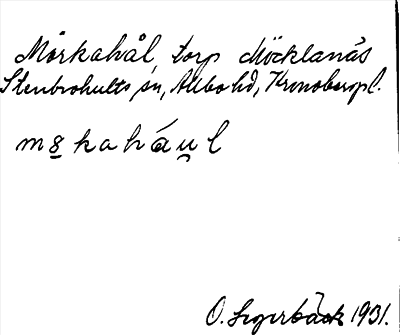 Mörkahål, torp Möcklanäs
Stenbrohults sn, Allbo hd, Kronobergs l.
m8kahául
O. Segerbäck 1931.